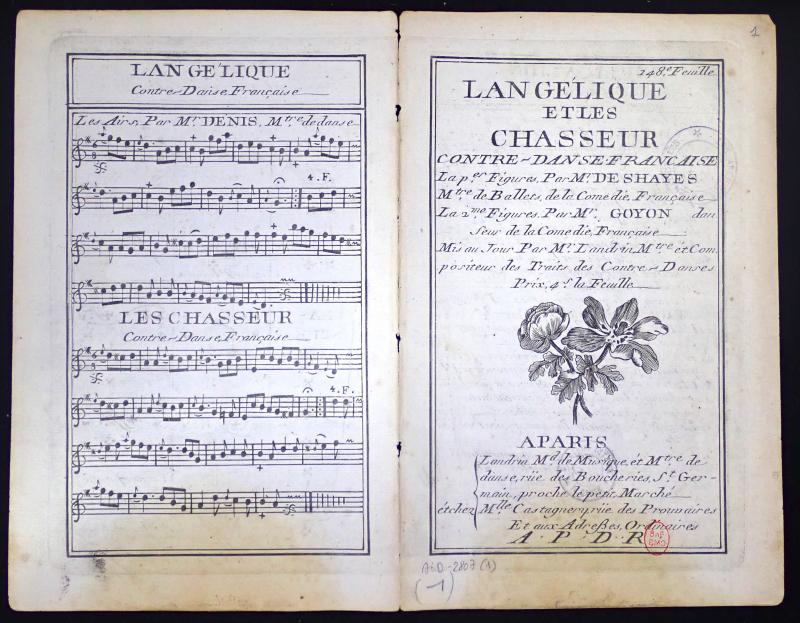 LANGÉLIQUE
Contre-Danse, Française
Les Airs, Par Mr. DENIS, Mtre. de danse
4.F.
LES CHASSEUR
Contre-Danse, Française
4.F.
1
148.e Feuille
LANGÉLIQUE
ET LES
CHASSEUR
CONTRE-DANSE FRANCAISE
La per Figures, Par Mr. DESHAYES
Mtre de Ballets, de la Comedie, Française
La 2me Figures, Par Mr. GOYON dan
seur de la Comedie, Française
Mis au Jour Par Mr. Landrin, Mtre ét Com
positeur des Traits des Contre-Danses
Prix, 4s. la Feuille
A PARIS
Landrin Md de Musique, ét Mtre de
danse, rüe des Boucheries, St. Ger-
main, proche le petit Marché
ét chez Mlle Castagnery, rüe des Prouvaires
Et aux Adreßes, Ordinaires
A. P. D. R
AiD-2807 (1)
(-1)